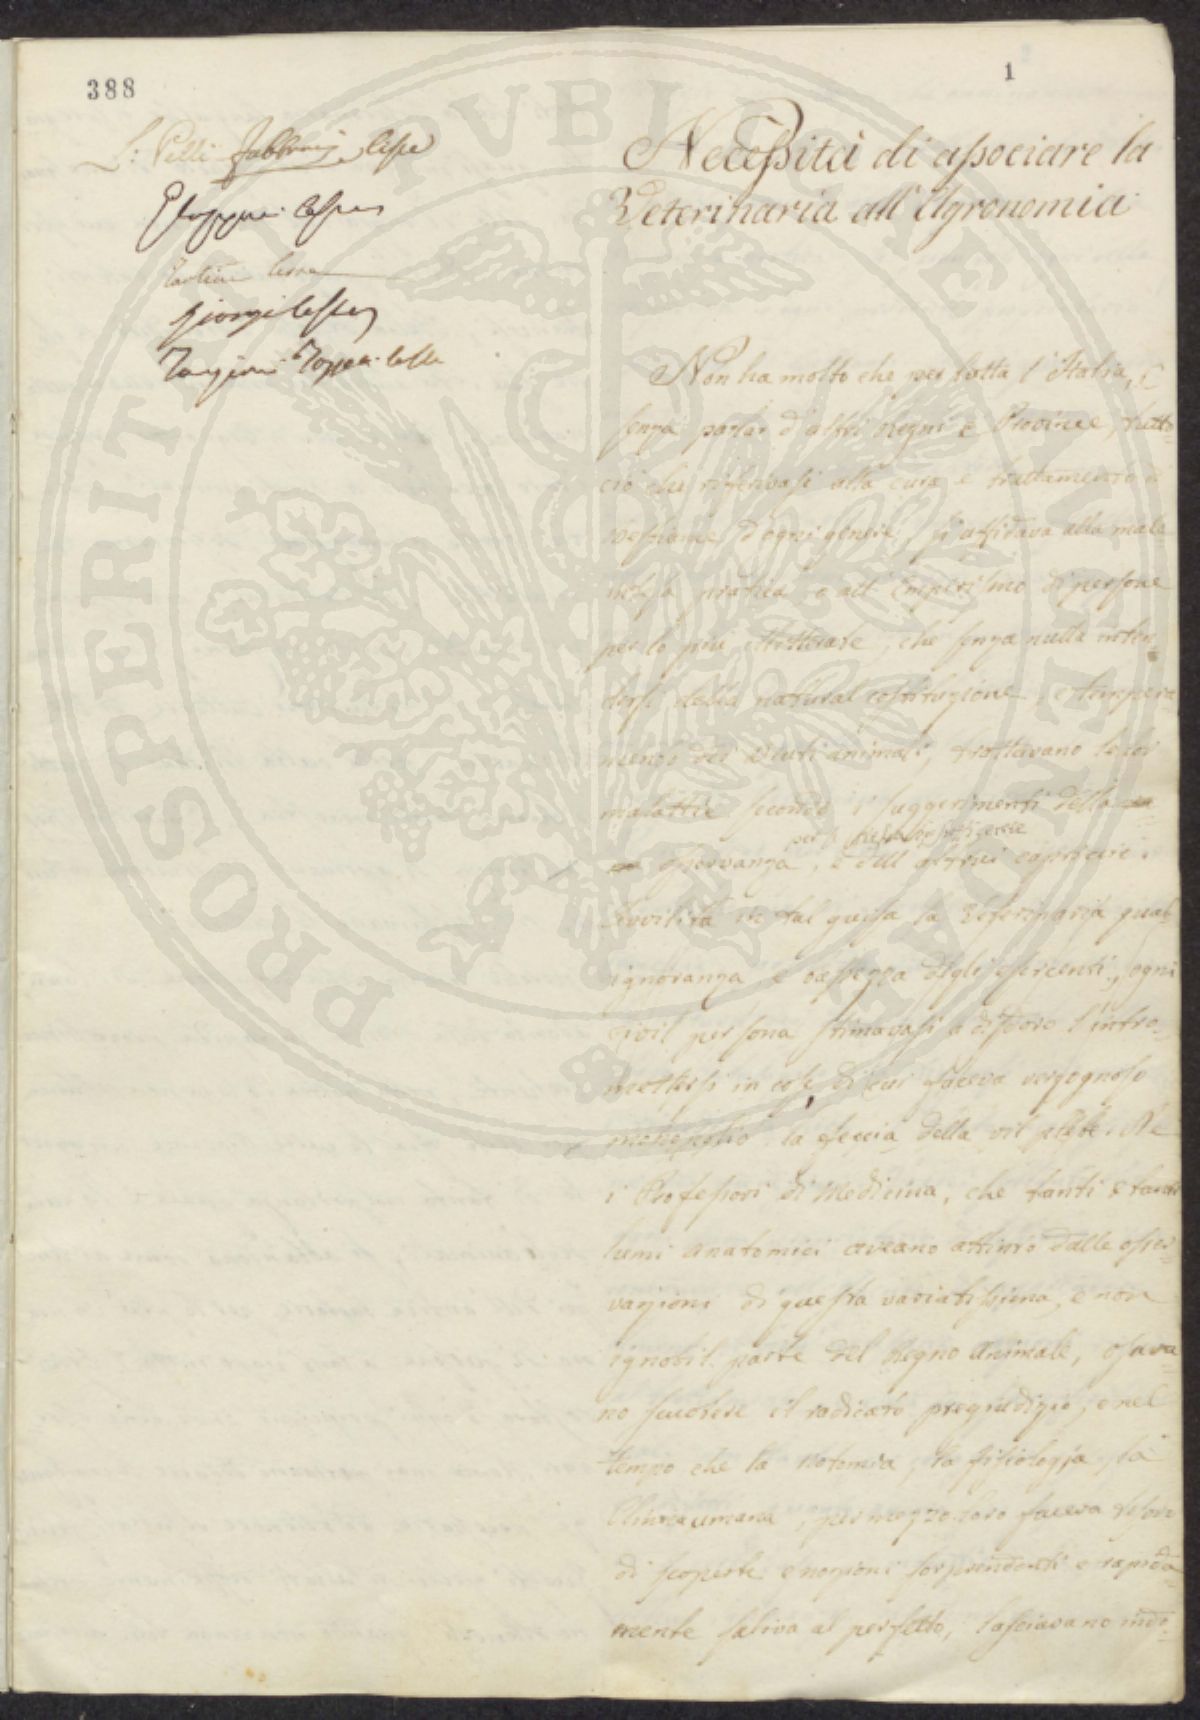 388
1
L: Pelli Fabbroni
Giorgi
Targioni Tozzetti
Necessità di associare la
Veterinaria all'Agronomia
Non ha molto che per tutta l'Italia, e
senza parlar d'altri Regni e Provincie, tutto
ciò che riferivasi alla cura e trattamento di
bestiame d'ogni genere, si affidava alla mala
intesa pratica o all'Emperismo di persone
per lo più illitterate, che senza nulla inten-
dersi della natural costituzione, e tempera-
mento dei bruti animali, trattavano le lor
malattie secondo i suggerimenti della
osservanza, e dell' altrui capriccio.
Avvilita in tal guisa la Veterinaria
ignoranza e bassezza degli esercenti, ogni
civil persona stimavasi a disdoro l'intro-
mettersi in cose di cui faceva vergognoso
la feccia della vil plebe. Nè
i Professori di Medicina, che tanti e tanti
lumi anatomici aveano attinto dalle osser-
vazioni di questa variatissima, e non
ignobil parte del Regno animale, osava-
no scuotere il radicato pregiudizio, e nel
tempo che la Notomia, la fisiologia, la
Clinica umana, per mezzo loro faceva tesoro
di scoperte e nozioni sorprendenti e rapida-
mente saliva al perfetto, lasciavano indi-
PROSPERITATI PVBLICAE AVGENDAE